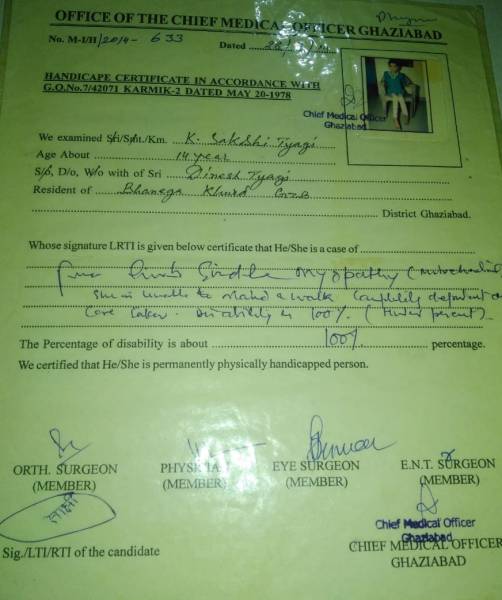 OFFICE OF THE CHIEF MEDICAL OFFICER GHAZIABAD
No. M-I/H/2014- 633
Dated
HANDICAPE CERTIFICATE IN ACCORDANCE WITH
G.O.No.7/42071 KARMIK-2 DATED MAY 20-1978
Chief Medical Officer
Ghaziabad
We examined Sri/Smt./Km. K. Sakshi Tyagi
Age About 14 year
S/o, D/o, W/o with of Sri Dinesh Tyagi
Resident of Bhanega Khurd GZB
District Ghaziabad.
Whose signature LRTI is given below certificate that He/She is a case of
Limb Girdle myopathy (
She is unable to stand & walk Completely dependent on
Care taker. Disability is 100%. (
The Percentage of disability is about 100% percentage.
We certified that He/She is permanently physically handicapped person.
ORTH. SURGEON PHYSICIAN EYE SURGEON E.N.T. SURGEON
(MEMBER) (MEMBER) (MEMBER) (MEMBER)
साक्षी
Chief Medical Officer
Ghaziabad
Sig./LTI/RTI of the candidate CHIEF MEDICAL OFFICER
GHAZIABAD